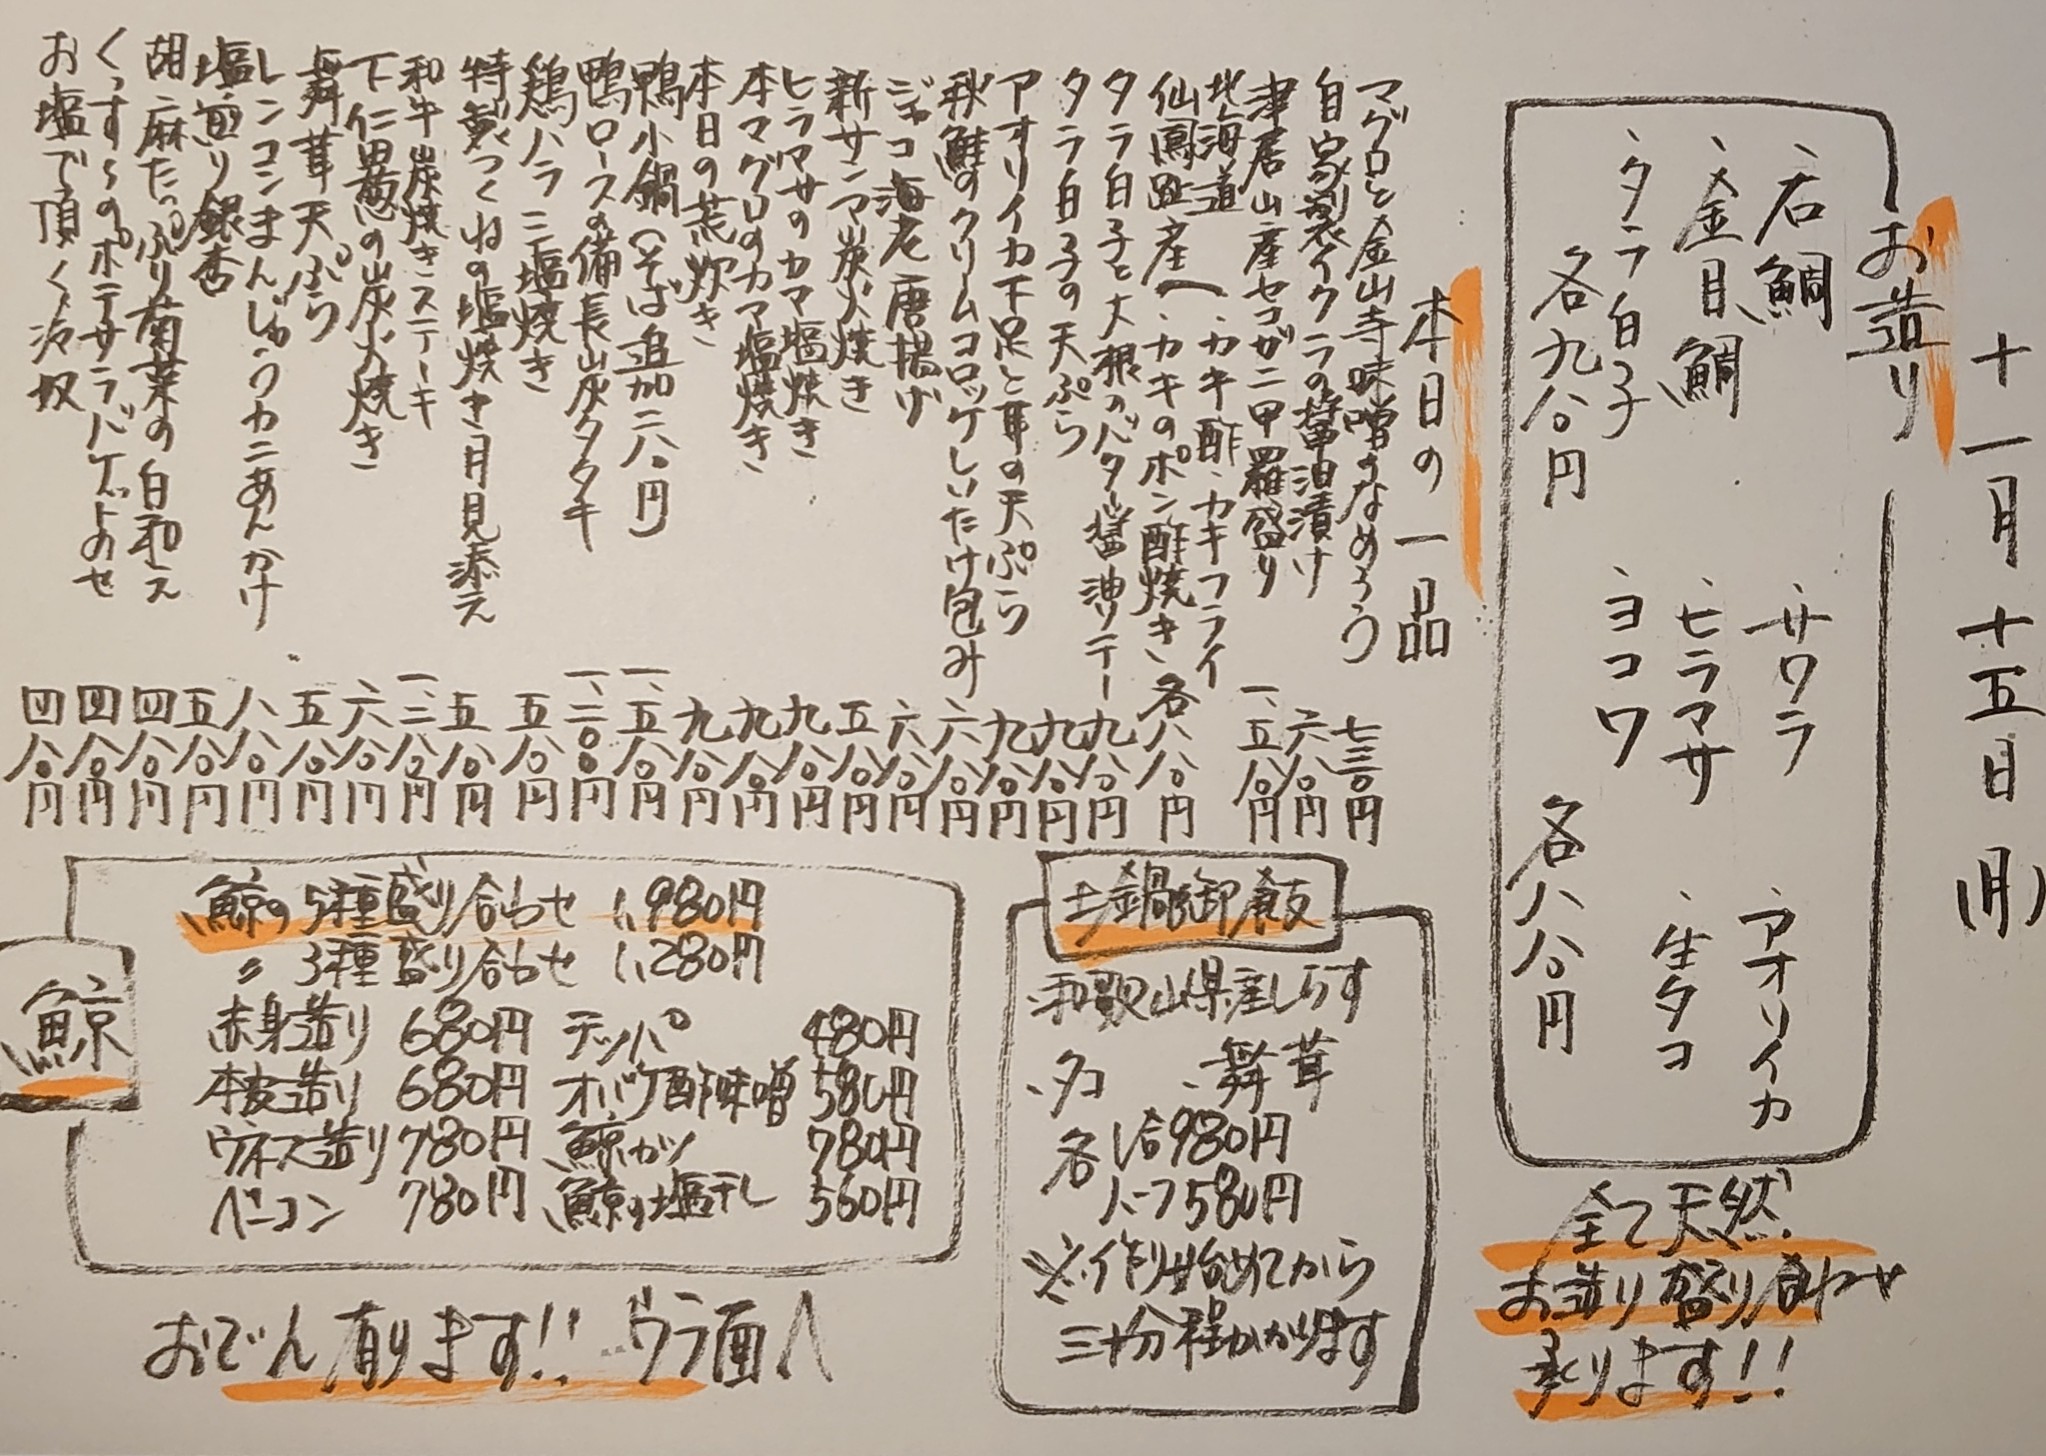 十一月十五日(月)
お造り
、石鯛
、金目鯛
、タラ白子
各九八〇円
、サワラ
、ヒラマサ
、ヨコワ
、アオリイカ
、生タコ
各八八〇円
全て天然
お造り盛り合わせ
承ります!!
本日の一品
マグロと金山寺味噌のなめろう 七三〇円
自家製イクラの醤油漬け 六八〇円
津居山産セコガニ甲羅盛り 一、五八〇円
北海道
仙鳳趾産へ、カキ酢、カキフライ
、カキのポン酢焼き 各八八〇円
タラ白子と大根のバター醤油ソテー 九八〇円
タラ白子の天ぷら 九八〇円
アオリイカ下足と耳の天ぷら 九八〇円
秋鮭のクリームコロッケしいたけ包み 六八〇円
ジャコ海老唐揚げ 六八〇円
新サンマ炭火焼き 五八〇円
ヒラマサのカマ塩焼き 九八〇円
本マグロのカマ塩焼き 九八〇円
本日の荒炊き 九八〇円
鴨小鍋(そば追加二八〇円 一、五八〇円
鴨ロースの備長炭タタキ 一、二〇〇円
鶏ハラミ塩焼き 五八〇円
特製つくねの塩焼き月見添え 五八〇円
和牛炭焼きステーキ 一、二八〇円
下仁田葱の炭火焼き 六八〇円
舞茸天ぷら 五八〇円
レンコンまんじゅうカニあんかけ 八八〇円
塩煎り銀杏 五八〇円
胡麻たっぷり菊菜の白和え 四八〇円
くっす〜のポテサラバゲットのせ 四八〇円
お塩で頂く冷奴 四八〇円
土鍋御飯
、和歌山県産しらす
、タコ 、舞茸
各 1合980円
ハーフ580円
※作り始めてから
三十分程かかります
鯨
鯨の5種盛り合わせ 1,980円
〃 3種盛り合わせ 1,280円
赤身造り 680円 テッパ 480円
本皮造り 680円 オバケ酢味噌 580円
ウネス造り 780円 鯨カツ 780円
ベーコン 780円 鯨の塩干し 560円
おでん有ります!! …ウラ面へ